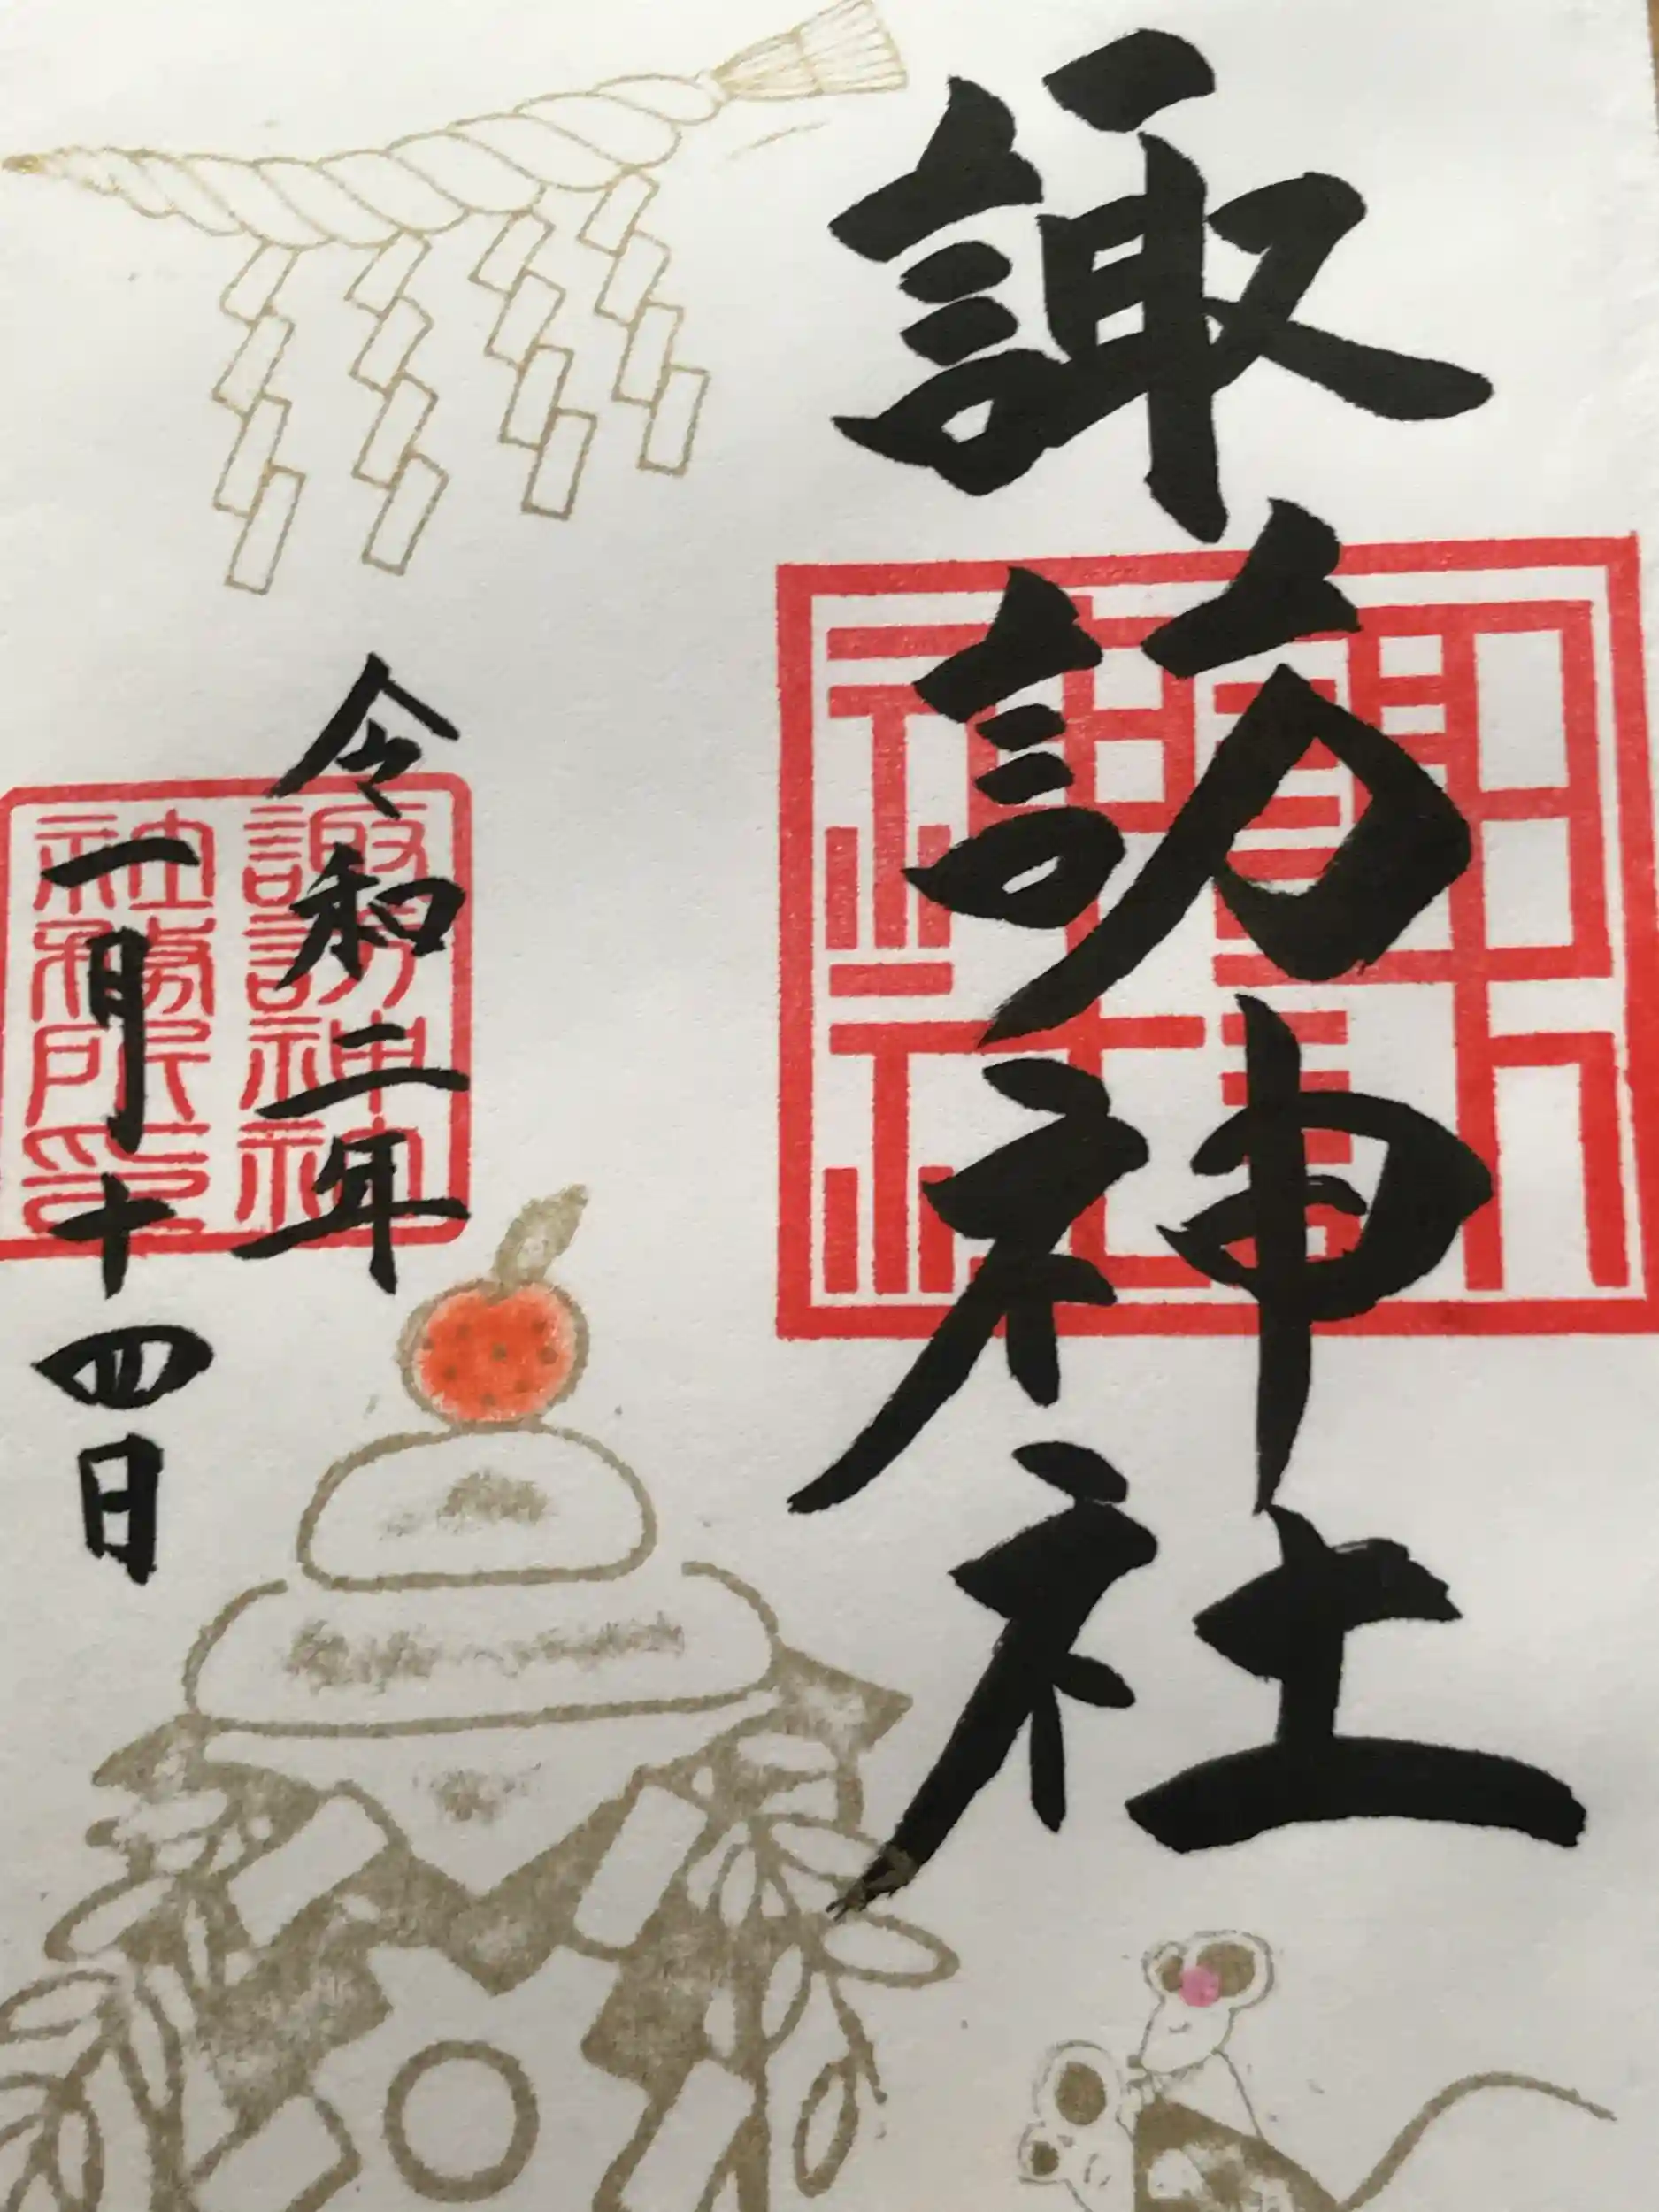 諏訪神社
令和二年
一月十四日
諏訪神社
社務所印